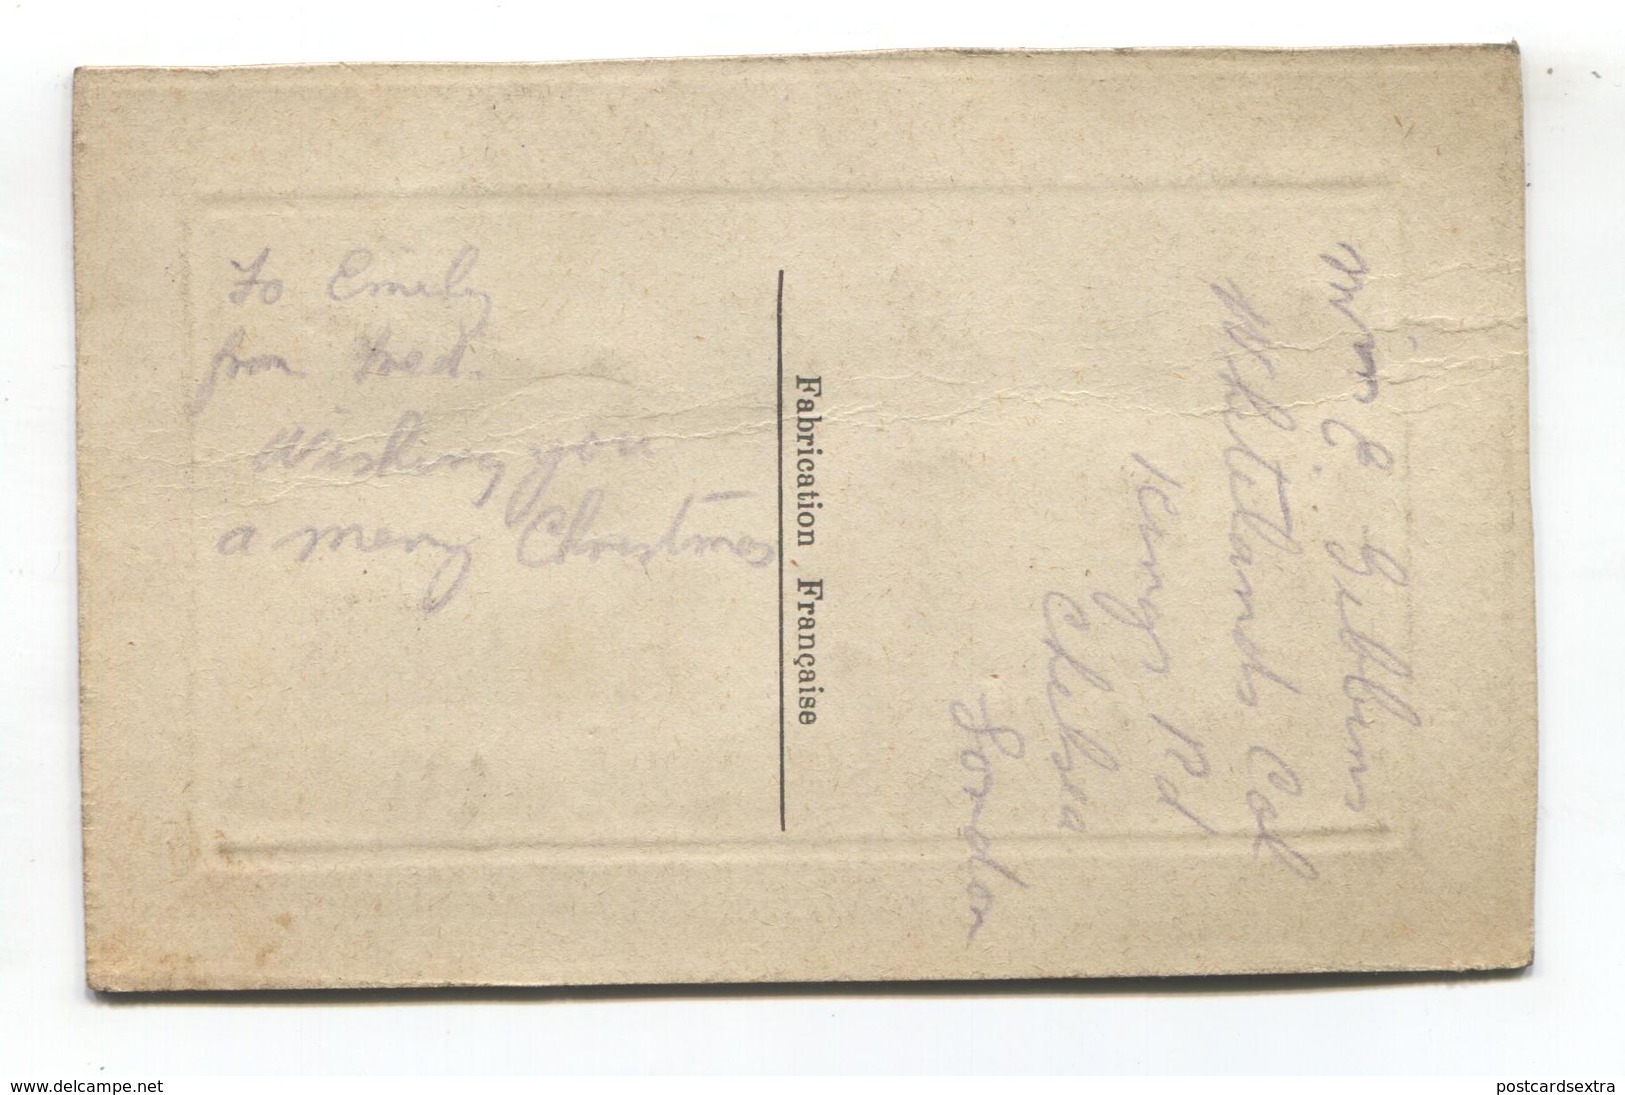 To Emily
from Fred.
Wishing you
a merry Christmas
Fabrication Française
E. Gibbins
Whitelands Col
Kings Rd
Chelsea
London
www.delcampe.net
postcardsextra